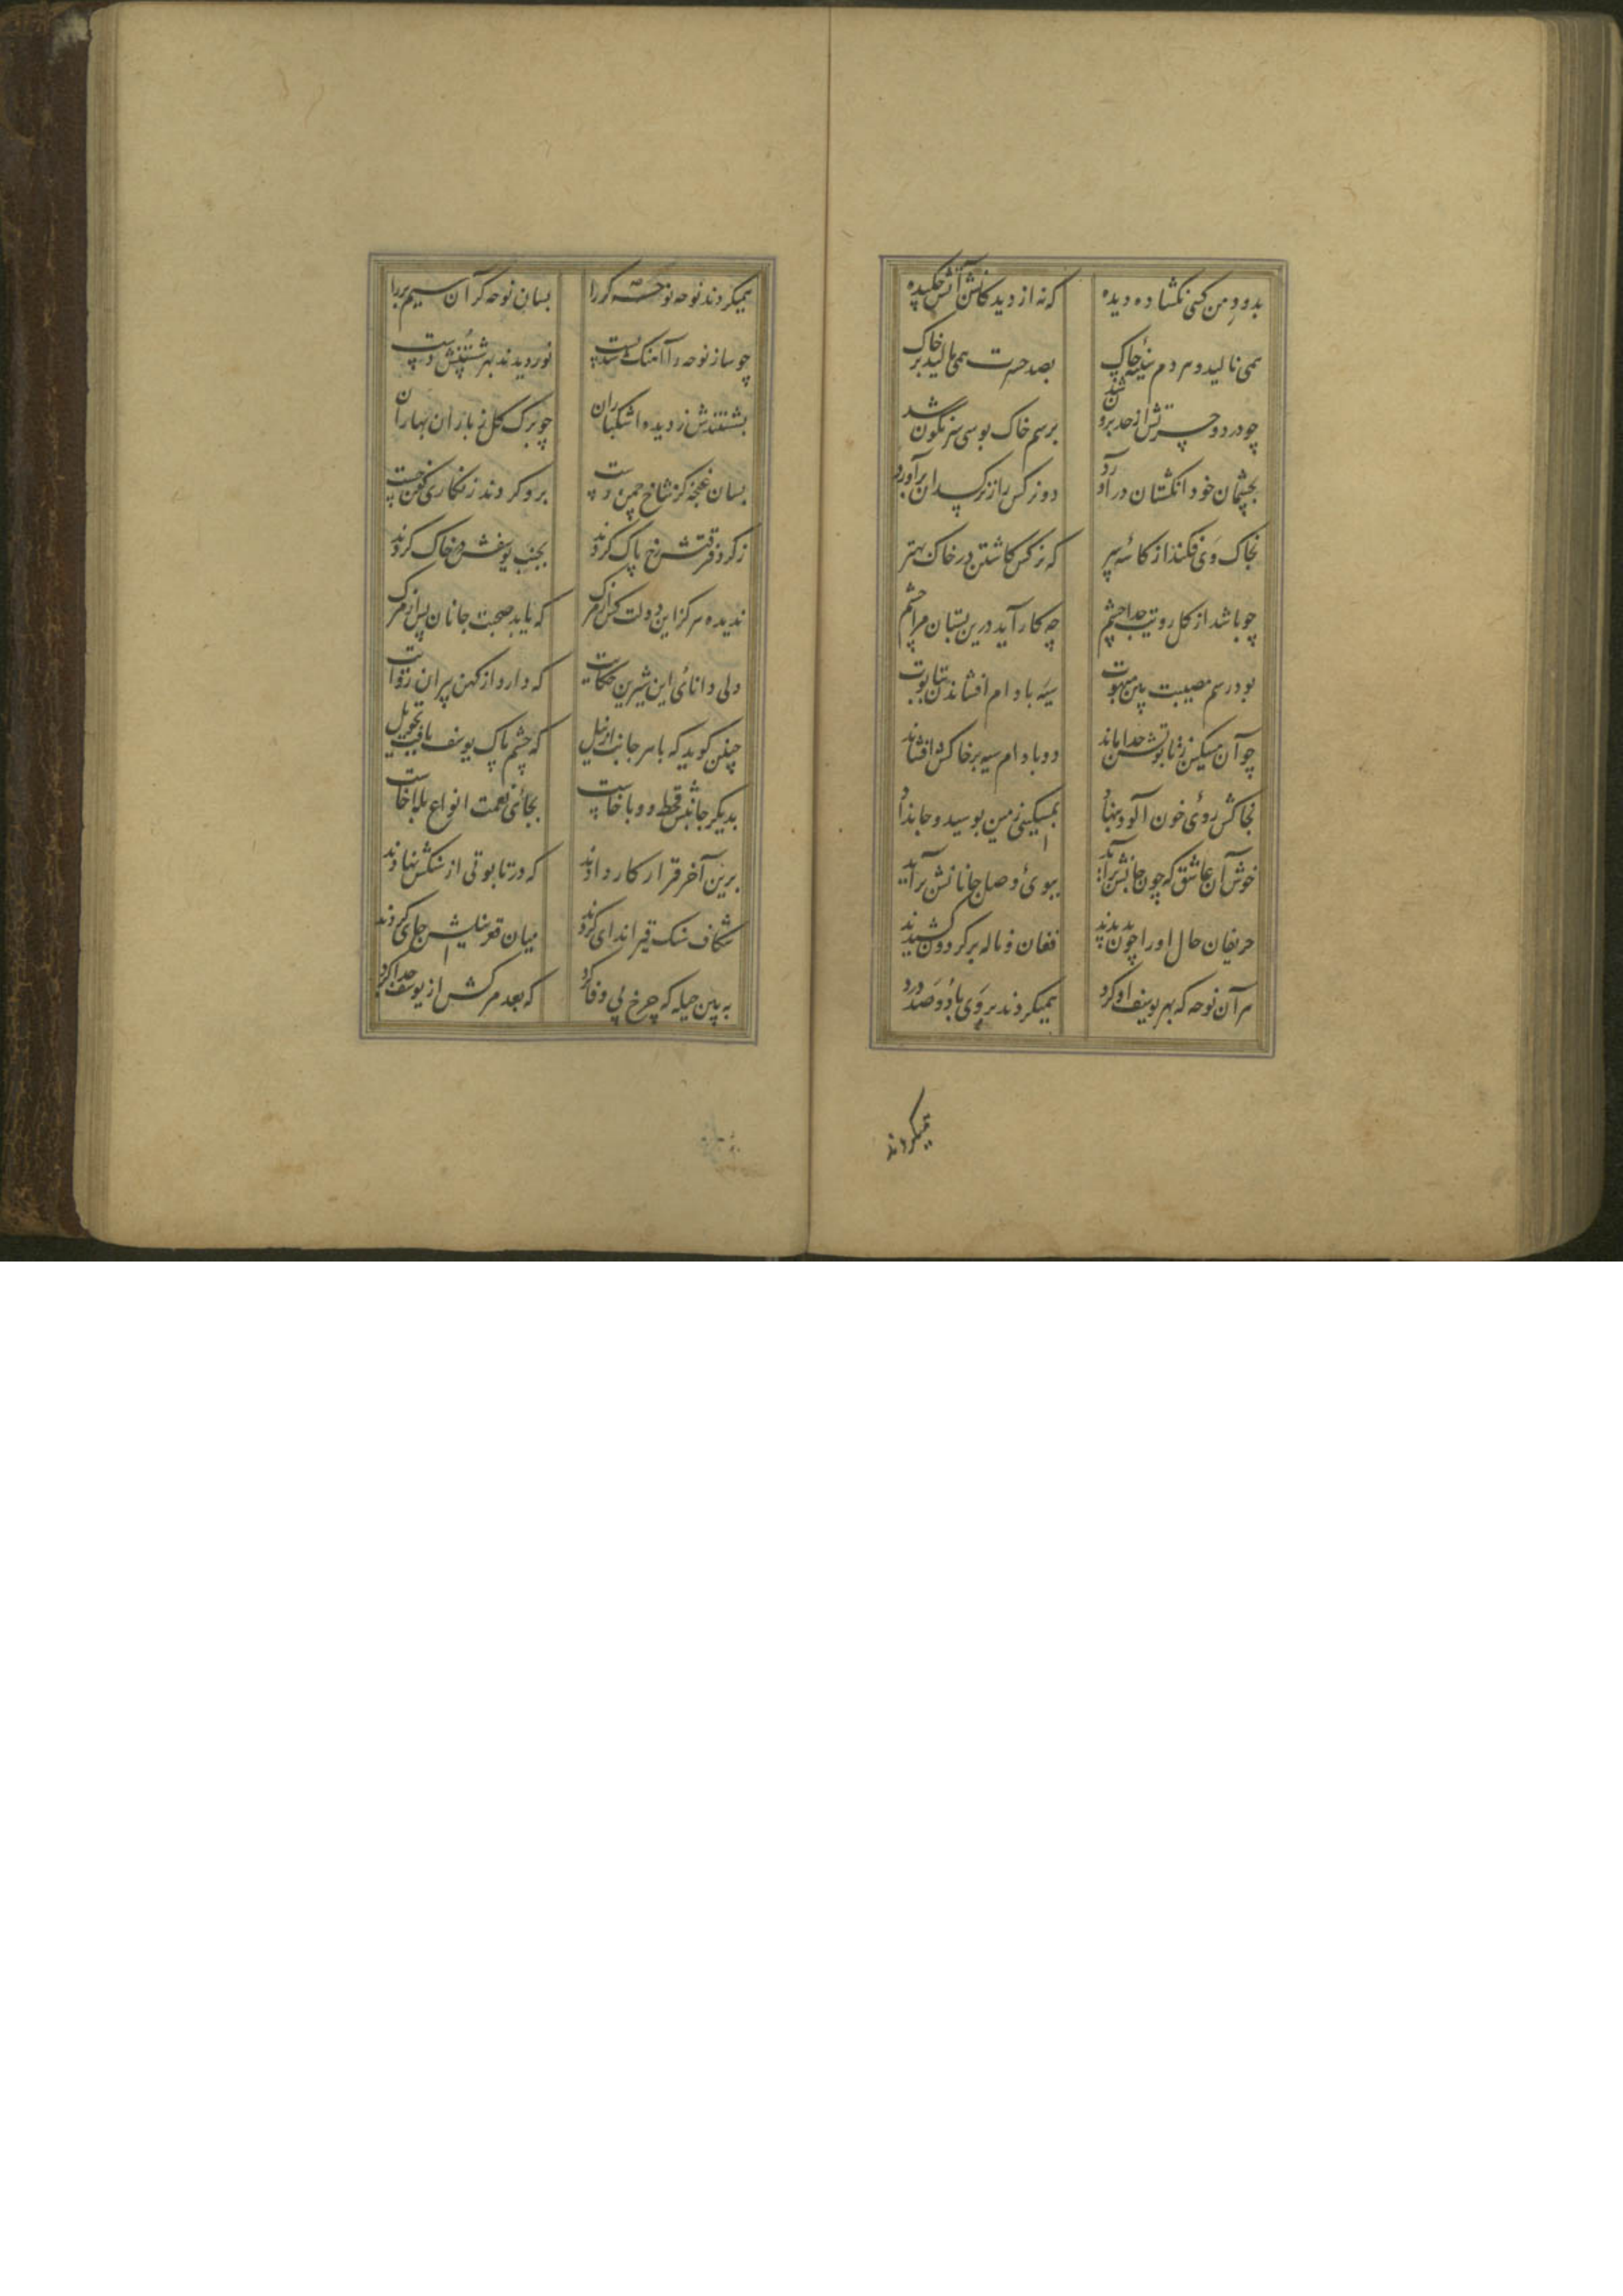 بدود من کسی نکشاده دیده که نه از دیدکانش آتش چکیده
همی نالید و هر دم سینهٔ چاک بصد حسرت همی مالید بر خاک
چو درد و حسرتش از حد برون شد برسم خاک بوسی سرنکون شد
بچشمان خود انکشتان در آورد دو نرکس را ز نرکسدان برآورد
بخاک وی فکند از کاسهٔ سر که نرکس کاشتن در خاک بهتر
چو باشد از کل رویت جدا چشم چه کار آید درین بستان مرا چشم
بود رسم مصیبت پین مبهوت سیه بادام افشاندن بتابوت
چو آن مسکین ز تابوتش جدا ماند دو بادام سیه بر خاکش افشاند
بخاکش روئی خون آلود بنهاد بمسکینی زمین بوسید و جان داد
خوش آن عاشق که چون جانش برآید ببوئ وصل جانانش برآید
حریفان حال او را چون بدیدند فغان و ناله بر کردون کشیدند
هر آن نوحه که بهر یوسف او کرد همیکردند بر وی با دو صد درد
همیکردند
همیکردند نوحه نوحه کر را بسان نوحه کر آن سیم بر را
چو ساز نوحه را آهنک شد پست نوردیدند بهر شستنش دست
بشستندش ز دیده اشکباران چو برک کل ز باران بهاران
بسان غنچه کز شاخ چمن رست برو کردند زنکاری کفن چست
ز کرد فرقتش رخ پاک کردند بجنب یوسفش در خاک کردند
ندیده هرکز این دولت کس از مرک که یابد صحبت جانان پس از مرک
ولی دانائ این شیرین حکایت که دارد از کهن پیران روایت
چنین کوید که با هر جانب از نیل که جسم پاک یوسف یافت تحویل
بدیکر جانبش قحط و وبا خاست بجائی نعمت انواع بلا خاست
برین آخر قرار کار دادند که در تابوتی از سنکش نهادند
شکاف سنک قیر اندای کردند میان قعر نیلش جای کردند
به پین حیله که چرخ بی وفا کرد که بعد مرکش از یوسف جدا کرد